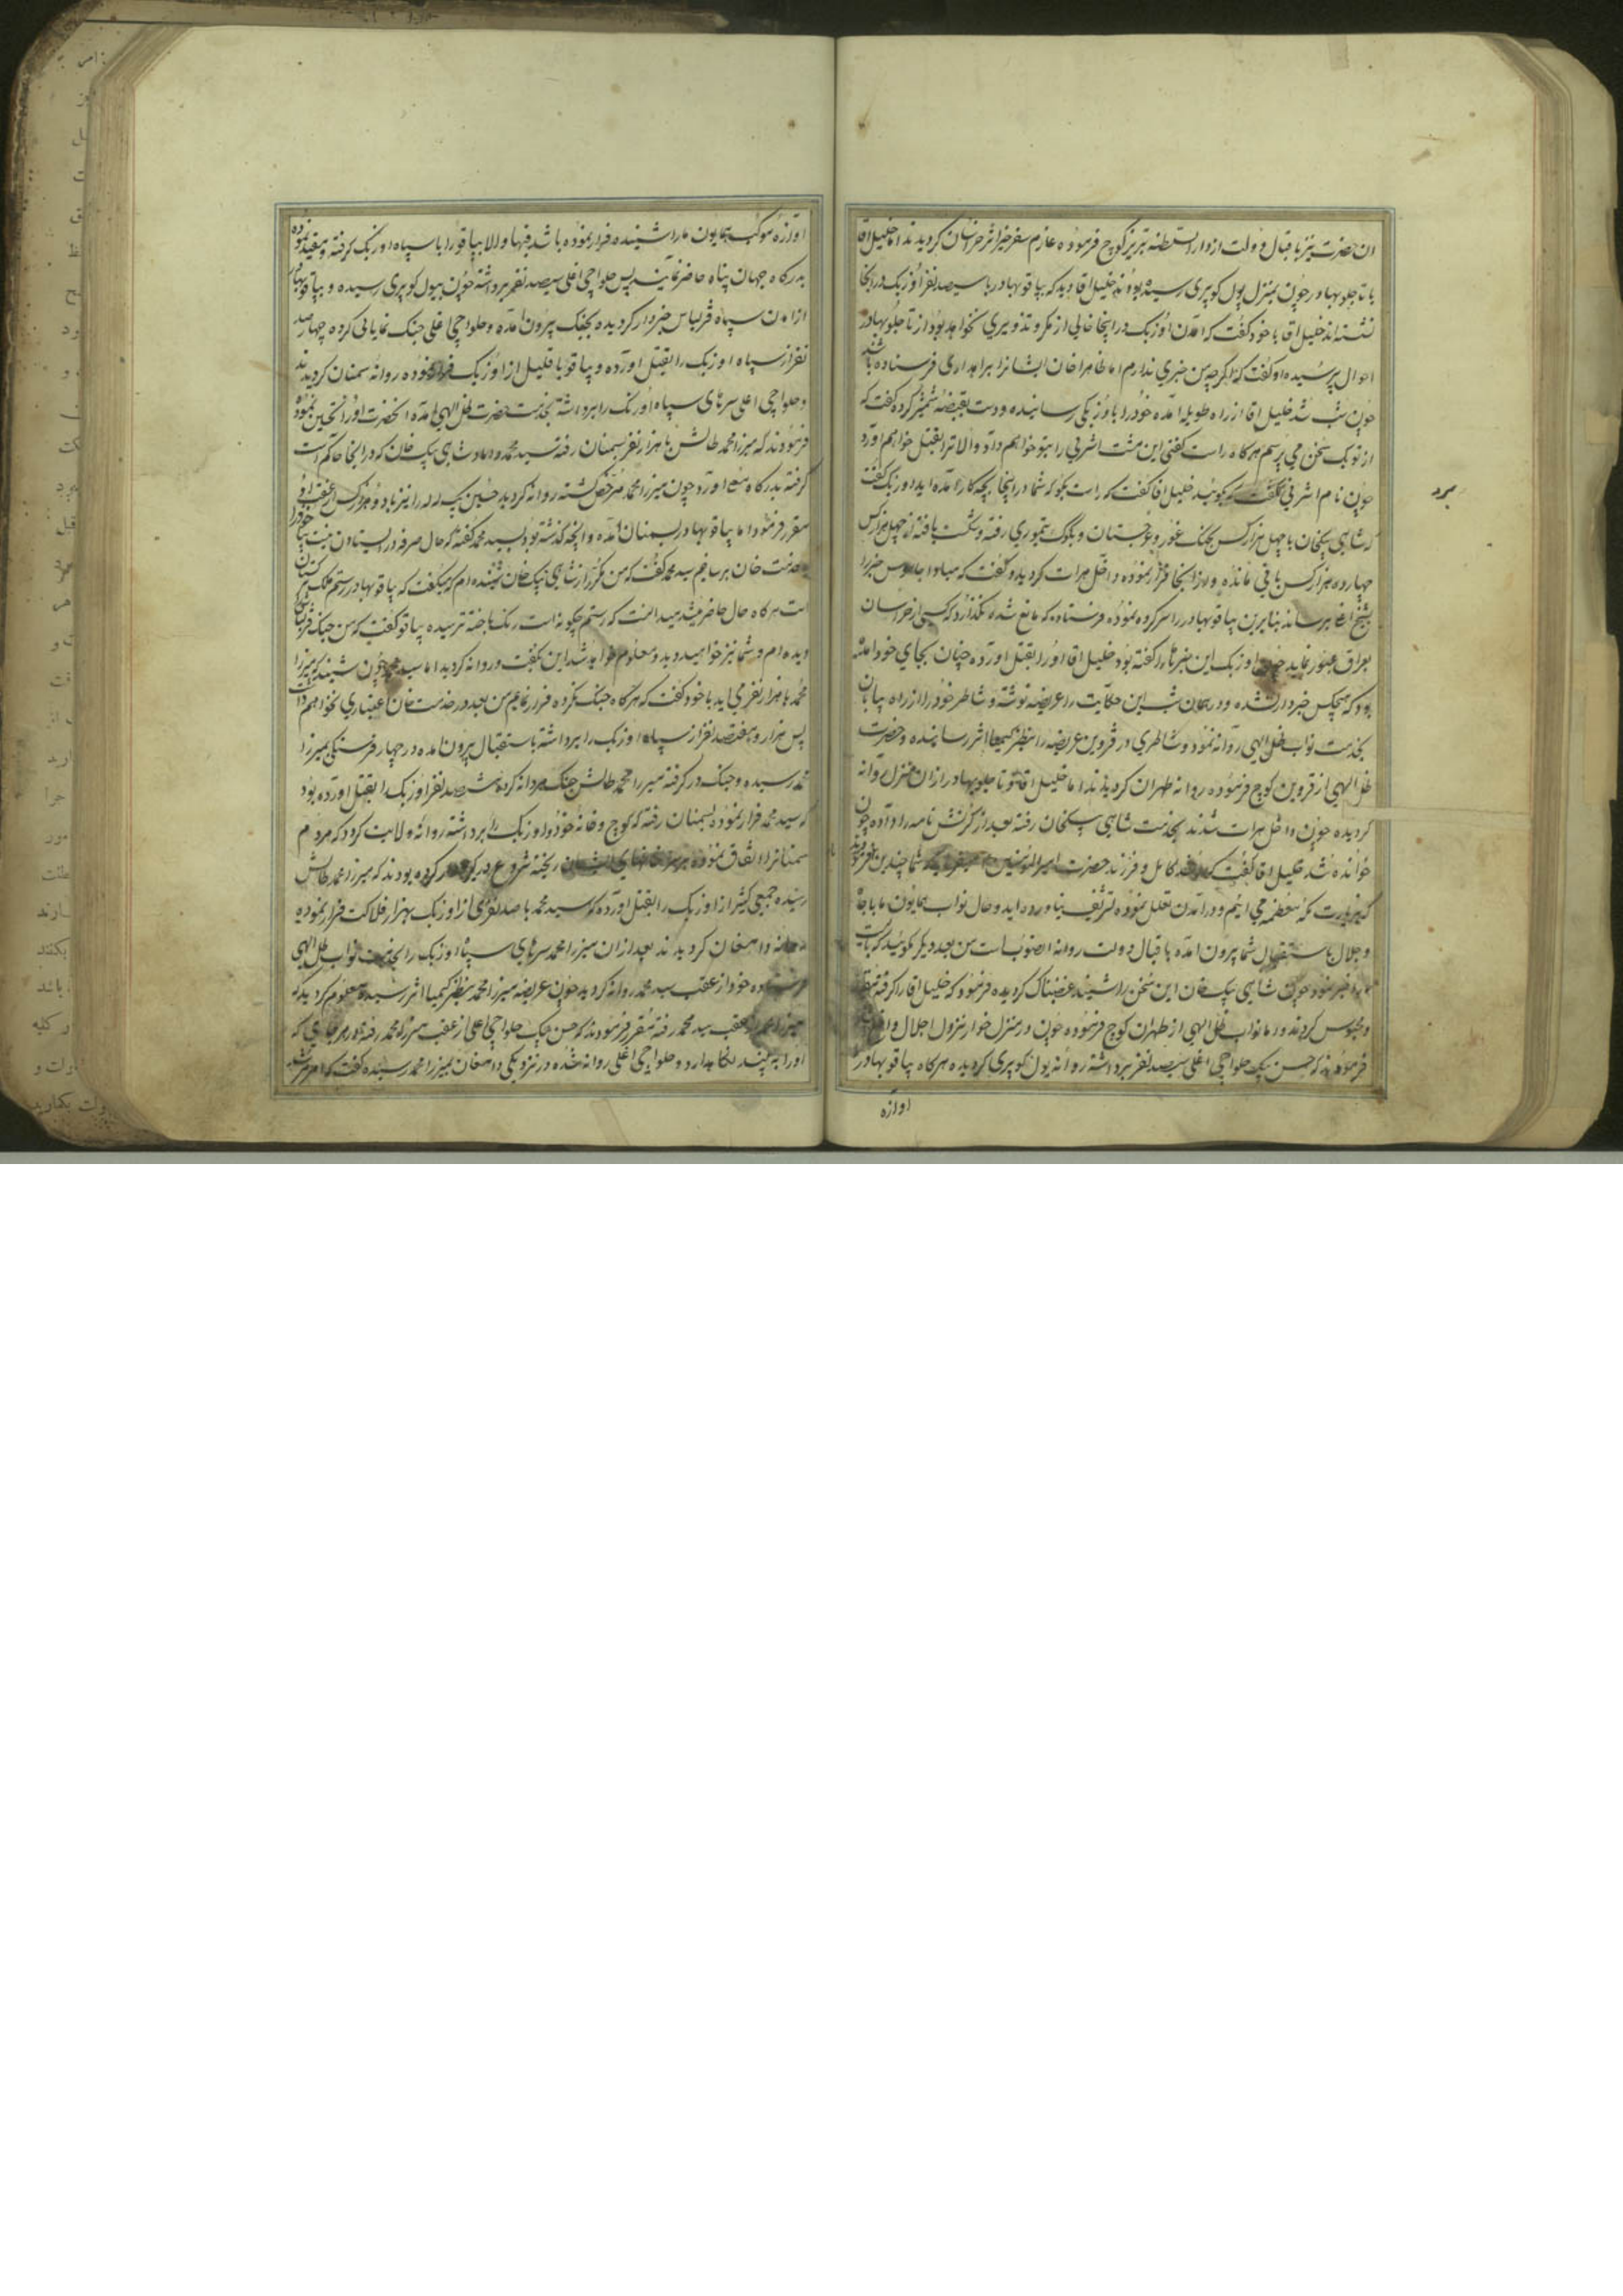 ان حضرت نیز باقبال و دولت از دار السلطنه تبریز کوچ فرموده عازم سفر خیر اثر خراسان کردیدند اما خلیل اقا
با تاجلو بهادر چون بمنزل پول کوپری رسیده بودند خلیل اقا دید که بیاقو بهادر با سیصد نفر اوزبک در انجا
نشسته اند خلیل اقا با خود کفت که امدن اوزبک در اینجا خالی از مکر و تذویری نخواهد بود از تاجلو بهادر
احوال پرسیده او کفت که من خبری ندارم اما ظاهرا خان ایشانرا براهداری فرستاده باشند
چون شب شد خلیل اقا از راه طویله امده خود را باوزبکی رسانیده و دست بقبضه شمشیر کرده کفت که
از تو یک سخن می پرسم هرکاه راست کفتی این مشت اشرفی را بتو خواهم داد و الا ترا بقتل خواهم اورد
چون نام اشرفی کفت که بکوئید خلیل اقا کفت که راست بکو که شما در اینجا بچه کار امده اید اوزبک کفت
که شاهی بیکخان با چهل هزار کس بجنک غور و غرجستان و بکوک تیموری رفته و شکست یافته از چهل هزار کس
چهارده هزار کس باقی مانده و از انجا فرار نموده داخل هرات کردید و کفت که مبادا جاسوس خبر را
بشیخ اغلی برساند بنابرین بیاقو بهادر را سرکرده نموده فرستاده که مانع شده نکذارد که کسی از خراسان
بعراق عبور نماید چون اوزبک این خبر را کفته بود خلیل اقا او را بقتل اورده چنان بجای خود امده
بود که هیچکس خبردار نشده و در همان شب این حکایت را عریضه نوشته و شاطر خود را از راه بیابان
بخدمت نواب ظل الهی روانه نمود و شاطری در قزوین عریضه را بنظر کیمیا اثر رسانیده و حضرت
ظل الهی از قزوین کوچ فرموده روانه طهران کردیدند اما خلیل اقا و تاجلو بهادر از ان منزل روانه
کردیده چون داخل هرات شدند بخدمت شاهی بیکخان رفته بعد از کرنش نامه را داده چون
خوانده شد خلیل اقا کفت که مرشد کامل و فرزند حضرت امیر المؤمنین میفرماید که شما چندین نفر فرمودید
که بزیارت مکه معظمه می ایم و در امدن تعلل نموده تشریف نیاورده اید و حال نواب همایون ما با جاه
و جلال باستقبال شما بیرون امده باقبال دولت روانه انصوب است من بعد دیکر نکوئید که بایست
خبر نمود چون شاهی بیک خان این سخن را شنید غضبناک کردیده فرمود که خلیل اقا را کرفته مقید
و محبوس کردند و اما نواب ظل الهی از طهران کوچ فرموده چون در منزل خوار نزول اجلال واقع شد
فرمودند که حسن بیک حلواچی اغلی سیصد نفر برداشته روانه پول کوپری کردیده هرکاه بیاقو بهادر
اوازه
اوازه موکب همایون ما را شنیده فرار نموده باشد فبها و الا بیاقو را با سپاه اوزبک کرفته و مقید نموده
بدرکاه جهان پناه حاضر نمایند پس حلواچی اغلی سیصد نفر برداشته چون بپول کوپری رسیده و بیاقو بهادر
از امدن سپاه قزلباش خبردار کردیده بجنک بیرون امده و حلواچی اغلی جنک نمایانی کرده چهارصد
نفر از سپاه اوزبک را بقتل اورده و بیاقو با قلیل از اوزبک فرار نموده روانه سمنان کردیدند
و حلواچی اغلی سرهای سپاه اوزبک را برداشته بخدمت حضرت ظل الهی امده انحضرت او را تحسین نموده
فرمودند که میرزا محمد طالش با هزار نفر بسمنان رفته سید محمد داماد شاهی بیک خان که در انجا حاکم است
کرفته بدرکاه معلی اورد چون میرزا محمد مرخص کشته روانه کردید حسین بیک لله را نیز با دو هزار کس از عقب او
مقرر فرمود اما بیاقو بهادر بسمنان امده و انچه کذشته بود بسید محمد کفته که حال صرفه در ایستادن نیست بیا خود را
بخدمت خان برسانیم سید محمد کفت که من مکرر از شاهی بیک خان شنیده ام که میکفت که بیاقو بهادر رستم ملک ترکستان
است هرکاه حال حاضر میشد میدانست که رستم چکونه است رنک باخته ترسیده بیاقو کفت که من جنک قزلباش
دیده ام و شما نیز خواهید دید و معلوم خواهد شد این بکفت و روانه کردید اما سید محمد چون شنید که میرزا
محمد با هزار نفر می اید با خود کفت که هرکاه جنک نکرده فرار نمایم من بعد در خدمت خان اعتباری نخواهم داشت
پس هزار و هفتصد نفر از سپاه اوزبک را برداشته باستقبال بیرون امده در چهار فرسنکی بمیرزا
محمد رسیده و جنک در کرفته میرزا محمد طالش جنک مردانه کرده شش صد نفر اوزبک را بقتل اورده بود
که سید محمد فرار نموده بسمنان رفته که کوچ و خانه خود و اوزبک را برداشته روانه ولایت کردد که مردم
سمنان اتفاق نموده بر سر خانهای ایشان ریخته شروع در کرده بودند که میرزا محمد طالش
رسیده جمعی کثیر از اوزبک را بقتل اورده که سید محمد با صد نفری از اوزبک بهزار فلاکت فرار نموده
روانه دامغان کردیدند بعد از ان میرزا محمد سرهای سپاه اوزبک را بخدمت نواب ظل الهی
فرستاده خود از عقب سید محمد روانه کردید چون عریضه میرزا محمد بنظر کیمیا اثر رسید و معلوم کردید که
میرزا محمد از عقب سید محمد رفته مقرر فرمودند که حسن بیک حلواچی اغلی از عقب میرزا محمد رفته در هر جای که
او را به بیند نکاهدارد و حلواچی اغلی روانه شده در نزدیکی دامغان بمیرزا محمد رسیده کفت که امر مرشد